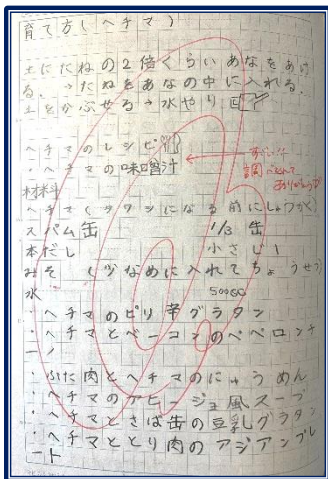 育て方(ヘチマ)
土にたねの2倍くらいあなをあけ
る。→たねをあなの中に入れる。
土をかぶせる→水やり
ヘチマのレシピ
・ヘチマの味噌汁
材料
ヘチマ(タワシになる前にしゅうかく)
スパム缶 1/3缶
本だし 小さじ1
みそ (少なめに入れてちょうせつ)
水 500cc
・ヘチマのピリ辛グラタン
・ヘチマとベーコンのペペロンチ
ーノ
・ぶた肉とヘチマのにゅうめん
・ヘチマのアヒージョ風スープ
・ヘチマとさば缶の豆乳グラタン
・ヘチマととり肉のアジアンプレ
ート